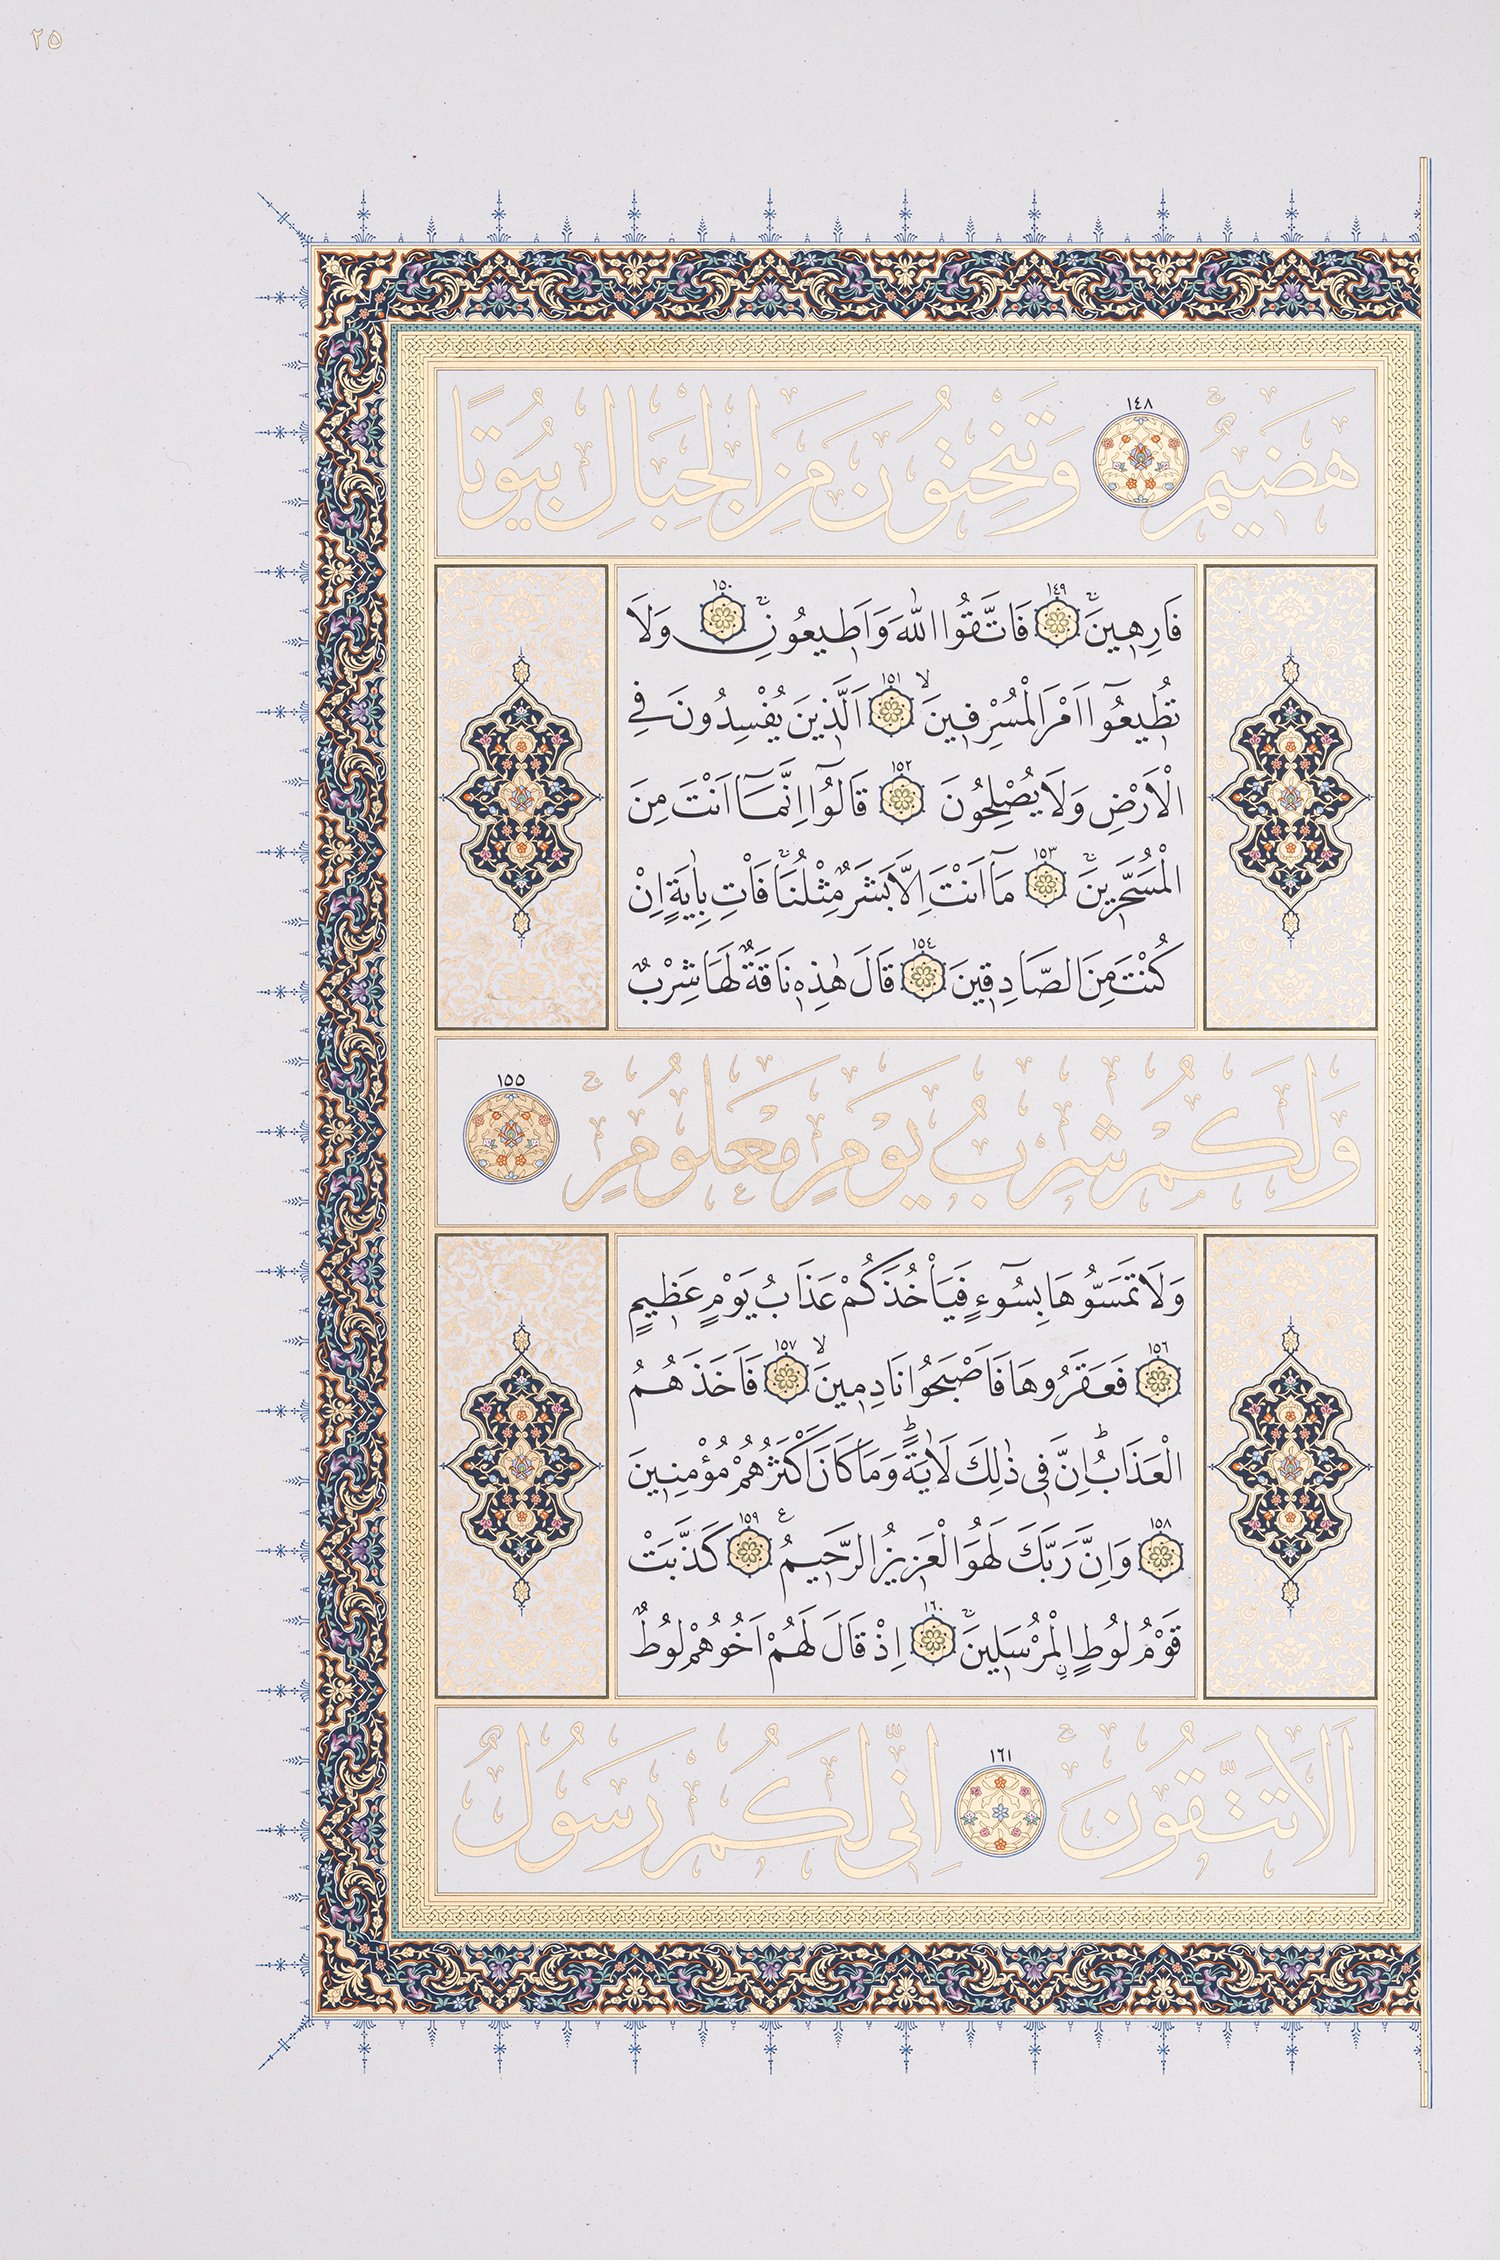 ٢٥
هَضِيمٌۚ ١٤٨ وَتَنْحِتُونَ مِنَ الْجِبَالِ بُيُوتًا
فَارِهِينَۚ ١٤٩ فَاتَّقُوا اللّٰهَ وَاَطِيعُونِۚ ١٥٠ وَلَا
تُطِيعُٓوا اَمْرَ الْمُسْرِفِينَۙ ١٥١ اَلَّذِينَ يُفْسِدُونَ فِي
الْاَرْضِ وَلَا يُصْلِحُونَ ١٥٢ قَالُٓوا اِنَّمَٓا اَنْتَ مِنَ
الْمُسَحَّرِينَۚ ١٥٣ مَٓا اَنْتَ اِلَّا بَشَرٌ مِثْلُنَاۚ فَأْتِ بِاٰيَةٍ اِنْ
كُنْتَ مِنَ الصَّادِقِينَ ١٥٤ قَالَ هٰذِهٖ نَاقَةٌ لَهَا شِرْبٌ
وَلَكُمْ شِرْبُ يَوْمٍ مَعْلُومٍۚ ١٥٥
وَلَا تَمَسُّوهَا بِسُٓوءٍ فَيَأْخُذَكُمْ عَذَابُ يَوْمٍ عَظِيمٍ
١٥٦ فَعَقَرُوهَا فَاَصْبَحُوا نَادِمِينَۙ ١٥٧ فَاَخَذَهُمُ
الْعَذَابُۜ اِنَّ فِي ذٰلِكَ لَاٰيَةًۜ وَمَا كَانَ اَكْثَرُهُمْ مُؤْمِنِينَ
١٥٨ وَاِنَّ رَبَّكَ لَهُوَ الْعَزِيزُ الرَّحِيمُ ع ١٥٩ كَذَّبَتْ
قَوْمُ لُوطٍ الْمُرْسَلِينَۚ ١٦٠ اِذْ قَالَ لَهُمْ اَخُوهُمْ لُوطٌ
اَلَا تَتَّقُونَۚ ١٦١ اِنِّي لَكُمْ رَسُولٌ